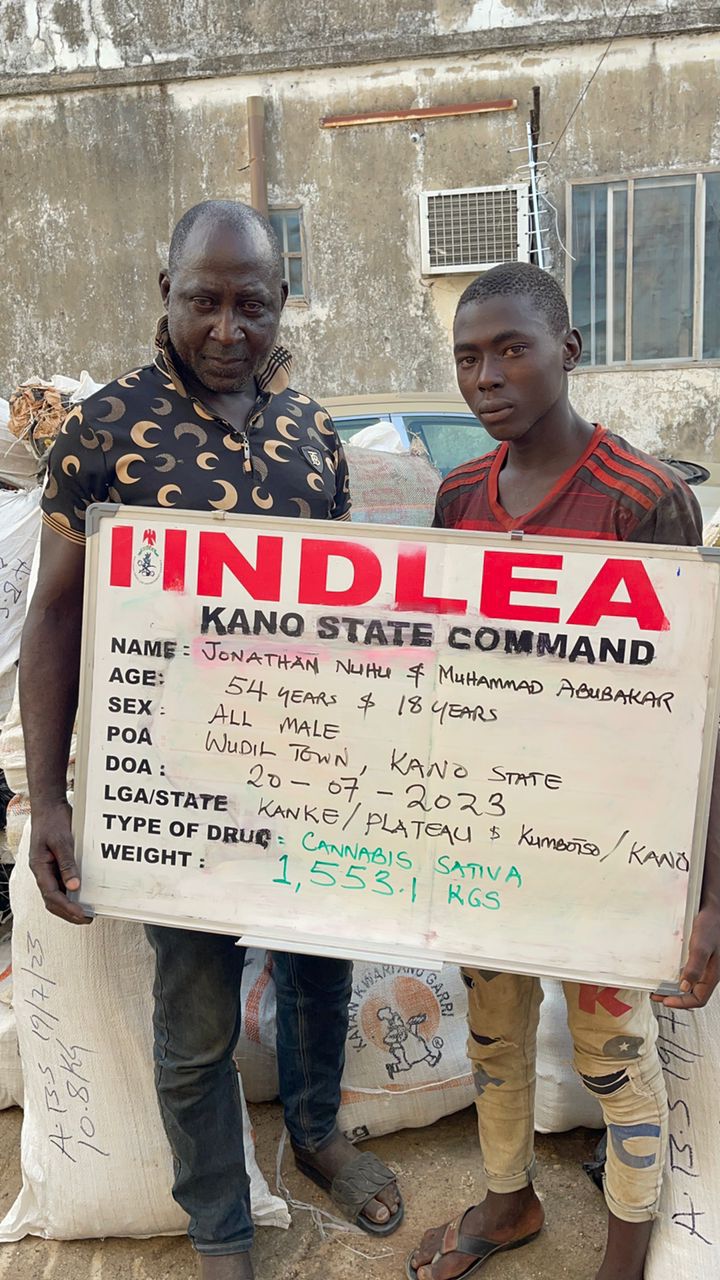 NDLEA
KANO STATE COMMAND
NAME : JONATHAN NUHU & MUHAMMAD ABUBAKAR
AGE: 54 YEARS & 18 YEARS
SEX : ALL MALE
POA WUDIL TOWN, KANO STATE
DOA : 20-07-2023
LGA/STATE KANKE/PLATEAU & KUMBOTSO/KANO
TYPE OF DRUG : CANNABIS SATIVA
WEIGHT : 1,553.1 KGS
A.T3.S 19/7/23
10.8KG
KWARI AND GARRI
A.T3.S 19/7